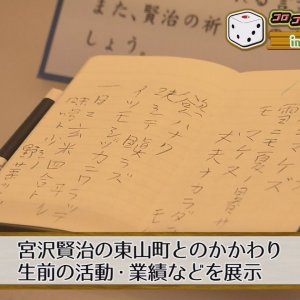 また、賢治の祈
しょう。
コロ
in
雪ニモ夏ノ
マケヌ
丈夫ナカラダ
慾ハナク
決シテ瞋ラズ
イツモシヅカニワラッテ
一日ニ玄米四合ト
味噌ト少シノ野菜
宮沢賢治の東山町とのかかわり
生前の活動・業績などを展示